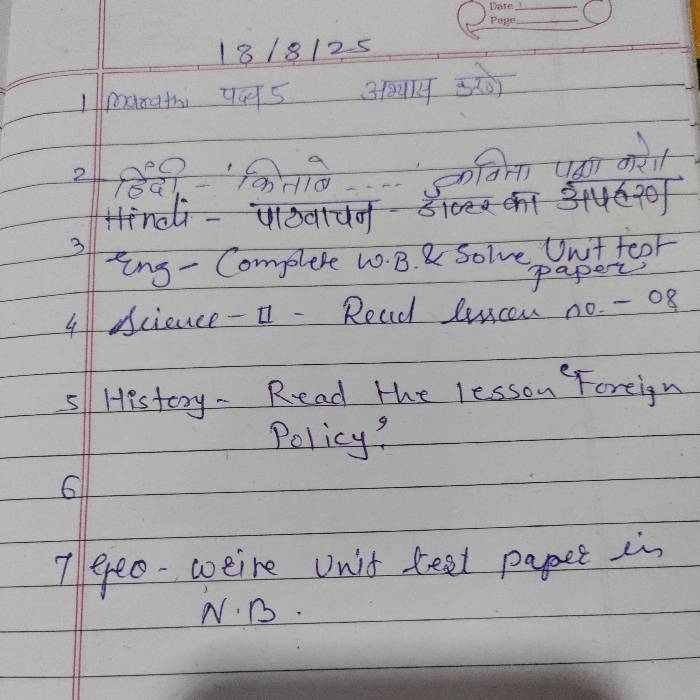 Date :
Page
18/8/25
1 Marathi पद्य 5 अभ्यास करणे
2 हिंदी - 'किताबे .... कविता पढ़ा करो।
Hindi - पाठवाचन - डाक्टर का अपहरण
3 Eng - Complete W.B. & Solve Unit test
paper.
4 Science - II - Read lesson no. - 08
5 History - Read the lesson "Foreign
Policy'.
6
7 Geo - Write Unit test paper in
N.B.